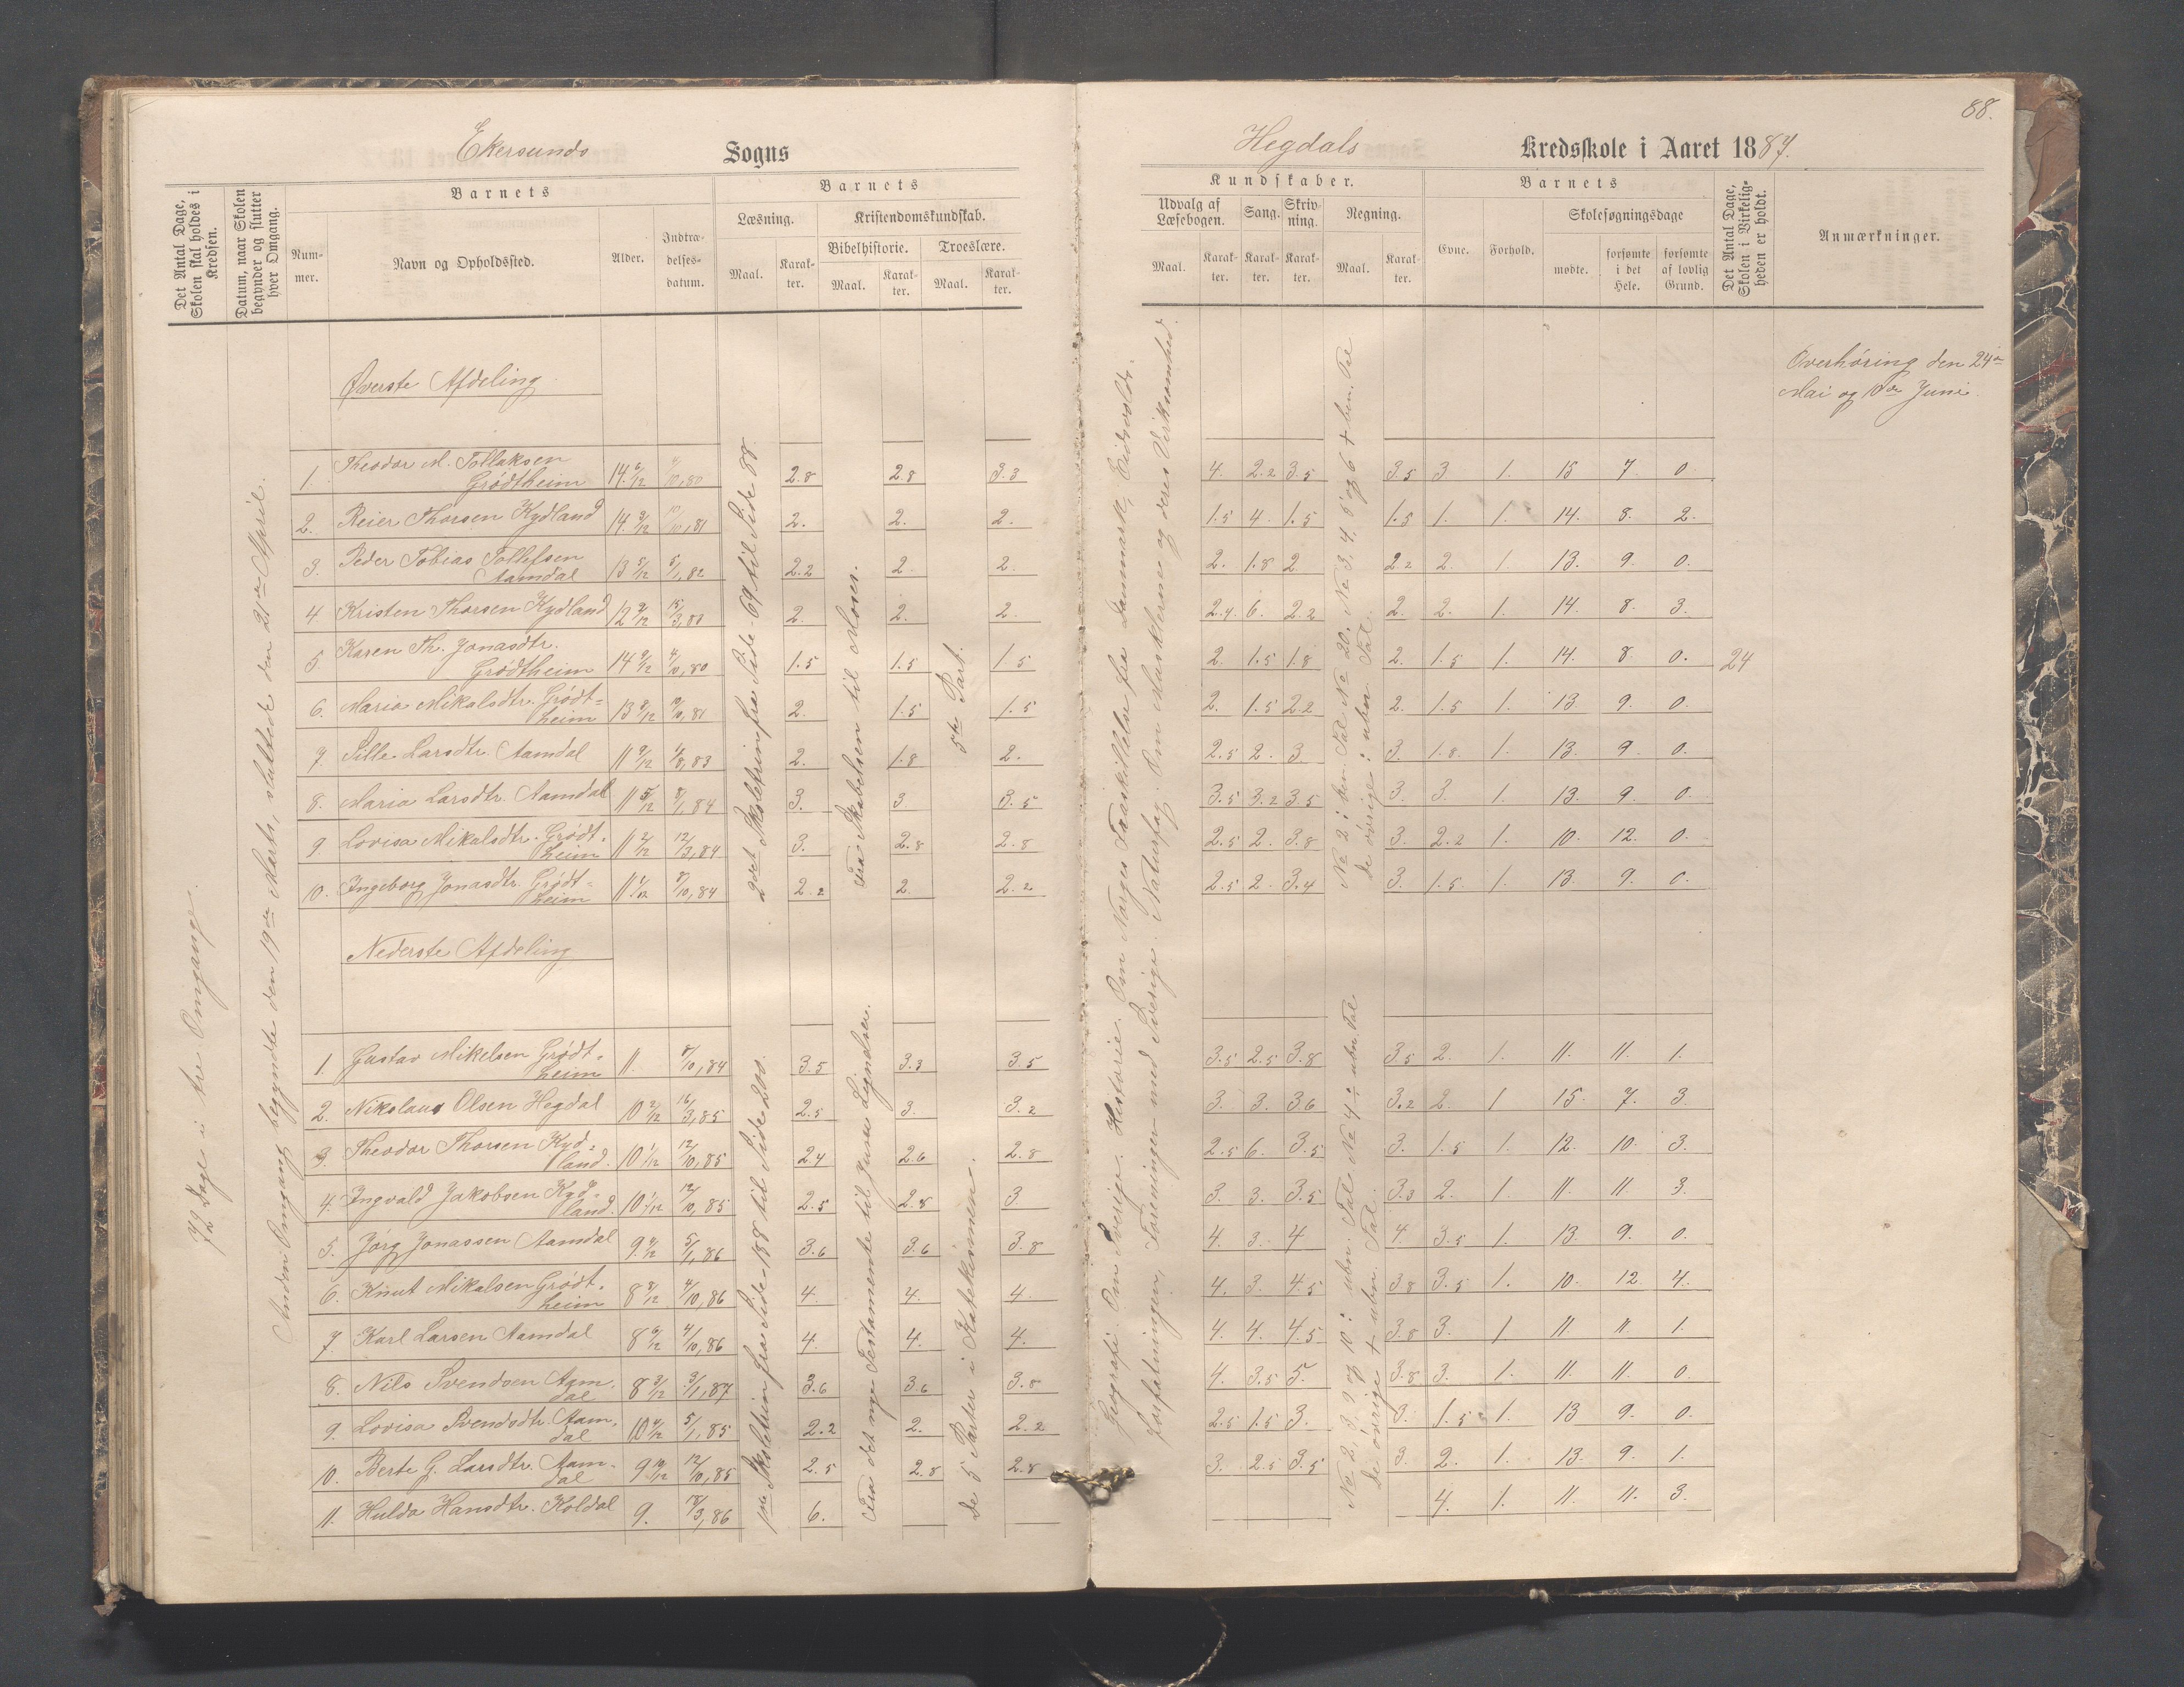 88.
Ekersunds Sogns
Hegdals Kredsskole i Aaret 1887.
Det Antal Dage, Skolen skal holdes i Kredsen.
Datum, naar Skolen begynder og slutter hver Omgang.
Barnets
Nummer.
Navn og Opholdssted.
Alder.
Indtrædelsesdatum.
Barnets
Læsning.
Kristendomskundskab.
Bibelhistorie.
Troeslære.
Maal. Karakter. Maal. Karakter. Maal. Karakter.
Kundskaber.
Udvalg af Læsebogen.
Sang.
Skrivning.
Regning.
Maal. Karakter. Karakter. Karakter. Maal. Karakter.
Barnets
Evne.
Forhold.
Skolesøgningsdage
mødte.
forsømte i det Hele.
forsømte af lovlig Grund.
Det Antal Dage, Skolen i Virkeligheden er holdt.
Anmærkninger.
72 Dage i tre Omgange.
Anden Omgang begyndte den 19de Marts, sluttede den 21de April.
Øverste Afdeling
Overhøring den 24de
Mai og 10de Juni.
1. Theodor M. Tollaksen Grødtheim 14 6/12 4/10,80 2.8 2.8 3.3 4. 2.2 3.5 3.5 3 1. 15 7. 0.
2. Reier Thorsen Kydland 14 3/12 10/10,81 2. 2. 2. 1.5 4. 1.5 1.5 1. 1. 14. 8. 2.
3. Peder Tobias Tollefsen Aamdal 13 5/12 5/1,82 2.2 2. 2. 2. 1.8 2. 2.2 2. 1. 13. 9. 0.
4 Kristen Thorsen Kydland 12 2. 2. 2. 2.4 6. 2.2 2. 2. 1. 14. 8. 3.
5. Karen Th. Jonasdtr. Grødtheim 14 9/12 4/10,80 1.5 1.5 1.5 2. 1.5 1.8 2. 1.5 1. 14. 8. 0. 24
6. Maria Mikalsdtr. Grødtheim 13 2. 1.5 1.5 2. 1.5 2.2 2. 1.5 1. 13. 9. 0.
7. Sille Larsdtr. Aamdal 11 9/12 2. 1.8 2. 2.5 2. 3 3. 1.8. 1. 13. 9. 0.
8. Maria Larsdtr. Aamdal 11 5/12 8/1,84 3. 3. 3.5 3.5 3.2 3.5 3. 3. 1. 13. 9. 0.
9. Lovisa Mikalsdtr. Grødtheim 11 2/12 12/3,84 3. 2.8 2.8 2.5 2. 3.8 3. 2.2 1. 10. 12. 0.
10. Ingeborg Jonasdtr. Grødtheim 11 1/12 8/10,84 2.2 2. 2.2 2.5 2. 3.4 3. 1.5. 1. 13. 9. 0.
2det Skoletrin fra Side 69 til Side 88.
Fra Skabelsen til Moses.
5te Part.
Geografi. Om Sverige. Historie. Om Norges Fraskillelse fra Danmark, Eidsvolds-
forfatningen, Foreningen med Sverige. Naturfag. Om Musklerne og deres Virksomhed.
De øvrige
Nederste Afdeling
1. Gustav Mikelsen Grødtheim 11. 8/10,84 3.5 3.3 3.5 3.5 2.5 3.8 3.5 2. 1. 11. 11. 1.
2. Nikolaus Olsen Hegdal 10 2/12 16/3,85 2.5 3. 3.2 3. 3. 3.6 3.2 2. 1 15. 7. 3.
3. Theodor Thorsen Kydland. 10 1/12 12/10,85 2.4 2.6 2.8 2.5 6. 3.5 3. 1.5 1. 12. 10. 3.
4. Ingvald Jakobsen Kydland. 10 1/12 12/10,85 2.5 2.8 3 3. 3. 3.5 3.3 2. 1. 11. 11. 3.
5. Jørg Jonassen Aamdal 9 5/1,86 3.6 3.6 3.8 4. 3. 4 4. 3.5 1. 13. 9. 0.
6. Knut Mikalsen Grødtheim 8 8/12 4/10,86 4. 4. 4. 4. 3. 4.5 3.8 3.5 1. 10. 12. 4.
7. Karl Larsen Aamdal 8 4/10,86 4. 4. 4. 4. 4. 4.5 3.8 3. 1 11 11. 1.
8. Nils Svendsen Aamdal 8 3/12 3/1,87 3.6 3.6 3.8 4. 3.5 5. 3.8 3. 1. 11. 11. 0
9. Lovisa Svendsdtr. Aamdal 10 5/1,85 2.2 2. 2.2 2.5 1.5 3. 3. 1.5 1. 13 9. 0.
10. Berte G. Larsdtr. Aamdal 9 10/12 12/10,85 2.5 2.8 2.8 3. 2.5 3.5 3. 2. 1. 13. 9. 1.
11. Hulda Hansdtr. Koldal 9. 18/3,86 6. 4. 1. 11. 11. 3.
1ste Skoletrin fra Side 188 til Side 200.
Fra det nye Testamente til Jesu Lignelser.
De 5 Parter i Katekismen.
De øvrige + ubn. Tal.